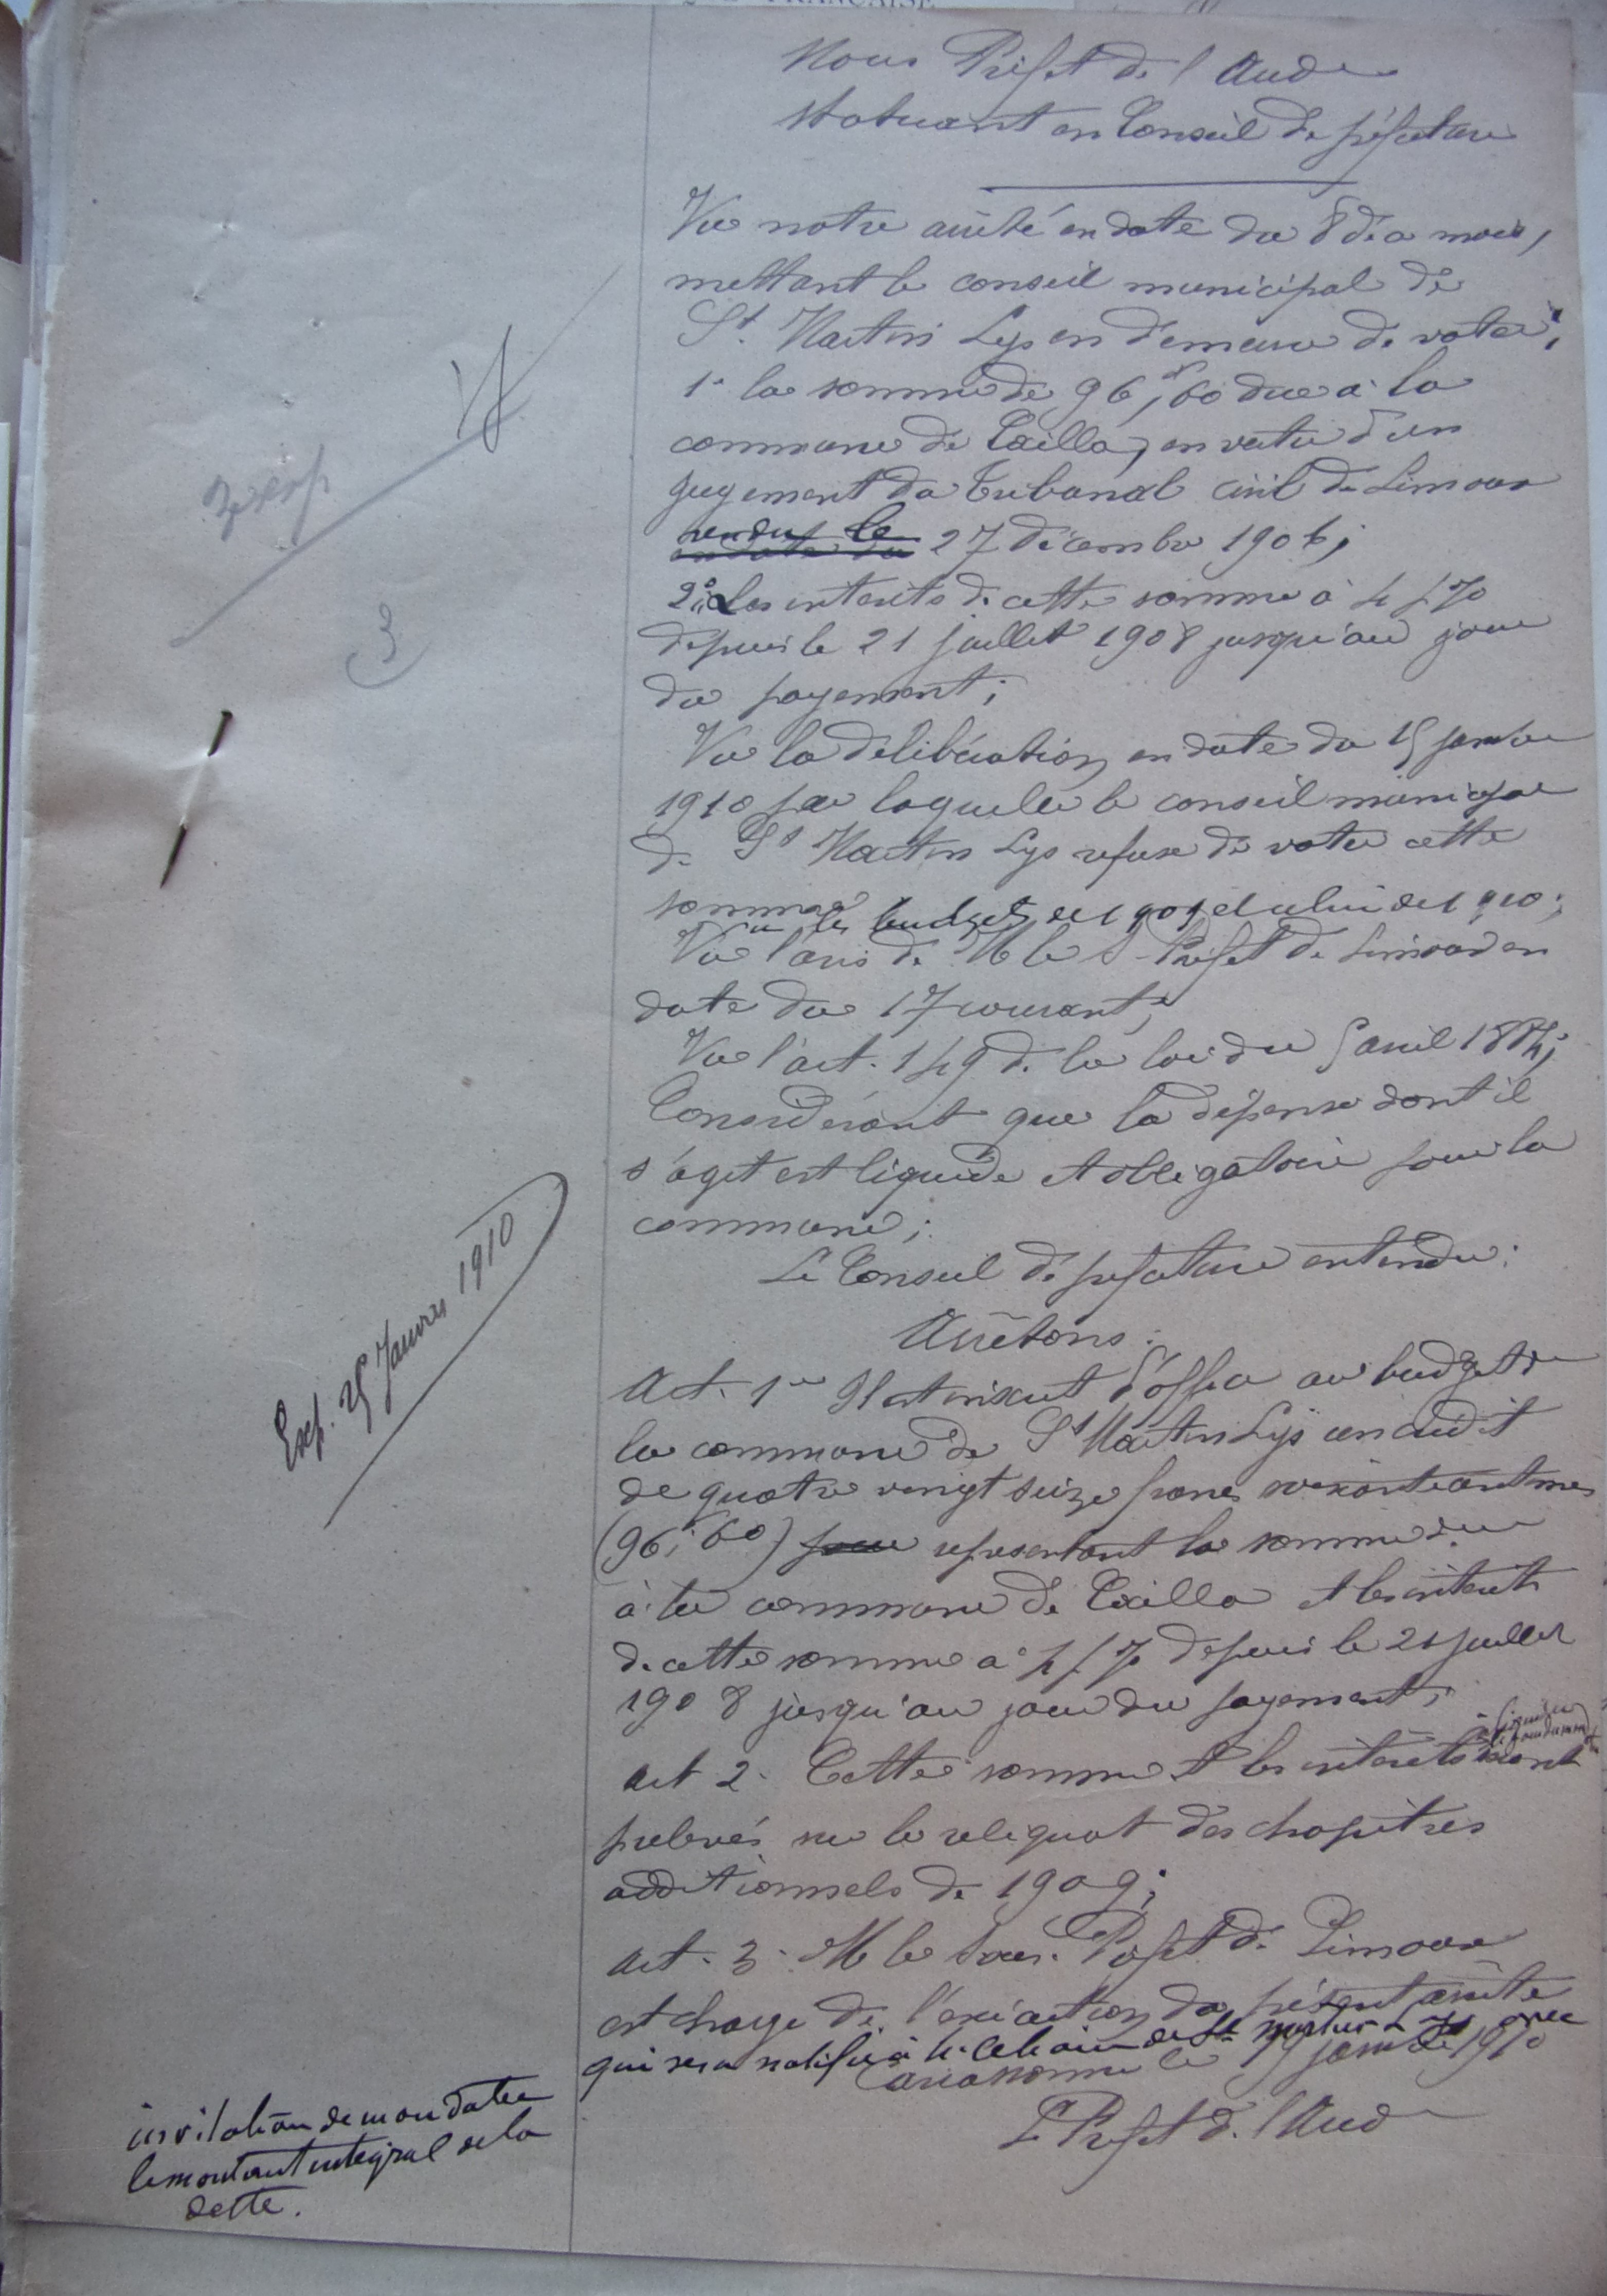 FRANÇAISE
Nous Préfet de l'Aude
Statuant en Conseil de préfecture
Vu notre arrêté en date du 8 de ce mois,
mettant le conseil municipal de
St Martin Lys en demeure de voter;
1° la somme de 96f,60 due à la
commune de Cailla, en vertu d'un
jugement du Tribunal civil de Limoux
rendu le 27 décembre 1906;
2° Les intérêts de cette somme à 4 f %
depuis le 21 juillet 1908 jusqu'au jour
du payement;
Vu la délibération en date du 15 janvier
1910 par laquelle le conseil municipal
de St Martin Lys refuse de voter cette
somme
budget de 1909 et celui de 1910;
Vu l'avis de M le S-Préfet de Limoux en
date du 17 courant;
Vu l'art. 149 de la loi du 5 avril 1884;
Considérant que la dépense dont il
s'agit est liquide et obligatoire pour la
commune;
Le Conseil de préfecture entendu:
Arrêtons:
Art. 1er Il est inscrit d'office au budget de
la commune de St Martin Lys un crédit
de quatre vingt seize francs soixante centimes
(96f,60) représentant la somme due
à la commune de Cailla et les intérêts
de cette somme à 4 f % depuis le 21 juillet
1908 jusqu'au jour du payement;
Art 2. Cette somme et les intérêts seront
prelevés sur le reliquat des chapitres
additionnels de 1909;
Art. 3. M le Sous-Préfet de Limoux
est chargé de l'exécution du présent arrêté
qui sera notifié à M. le Maire de St Martin Lys avec
Carcassonne le 19 janvier 1910
Le Préfet de l'Aude
3 exp
3
Exp. 25 Janvier 1910
invitation de mandater
le montant intégral de la
dette.